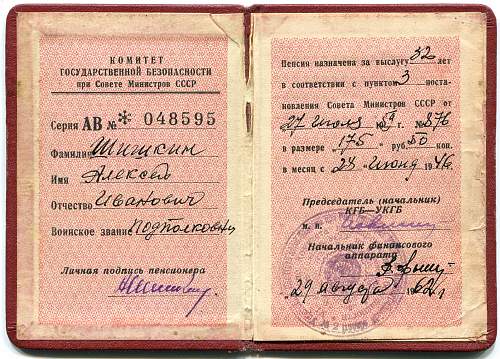 КОМИТЕТ
ГОСУДАРСТВЕННОЙ БЕЗОПАСНОСТИ
при Совете Министров СССР
Серия АВ № * 048595
Фамилия Шишкин
Имя Алексей
Отчество Иванович
Воинское звание Подполковник
Личная подпись пенсионера
Пенсия назначена за выслугу 32 лет
в соответствии с пунктом 3 поста-
новления Совета Министров СССР от
27 июля 59 г. № 876
в размере "175" руб 50 коп.
в месяц с 23 июня 1946
Председатель (начальник)
КГБ—УКГБ
м. п.
Начальник финансового
аппарата
"29 августа 1962 г